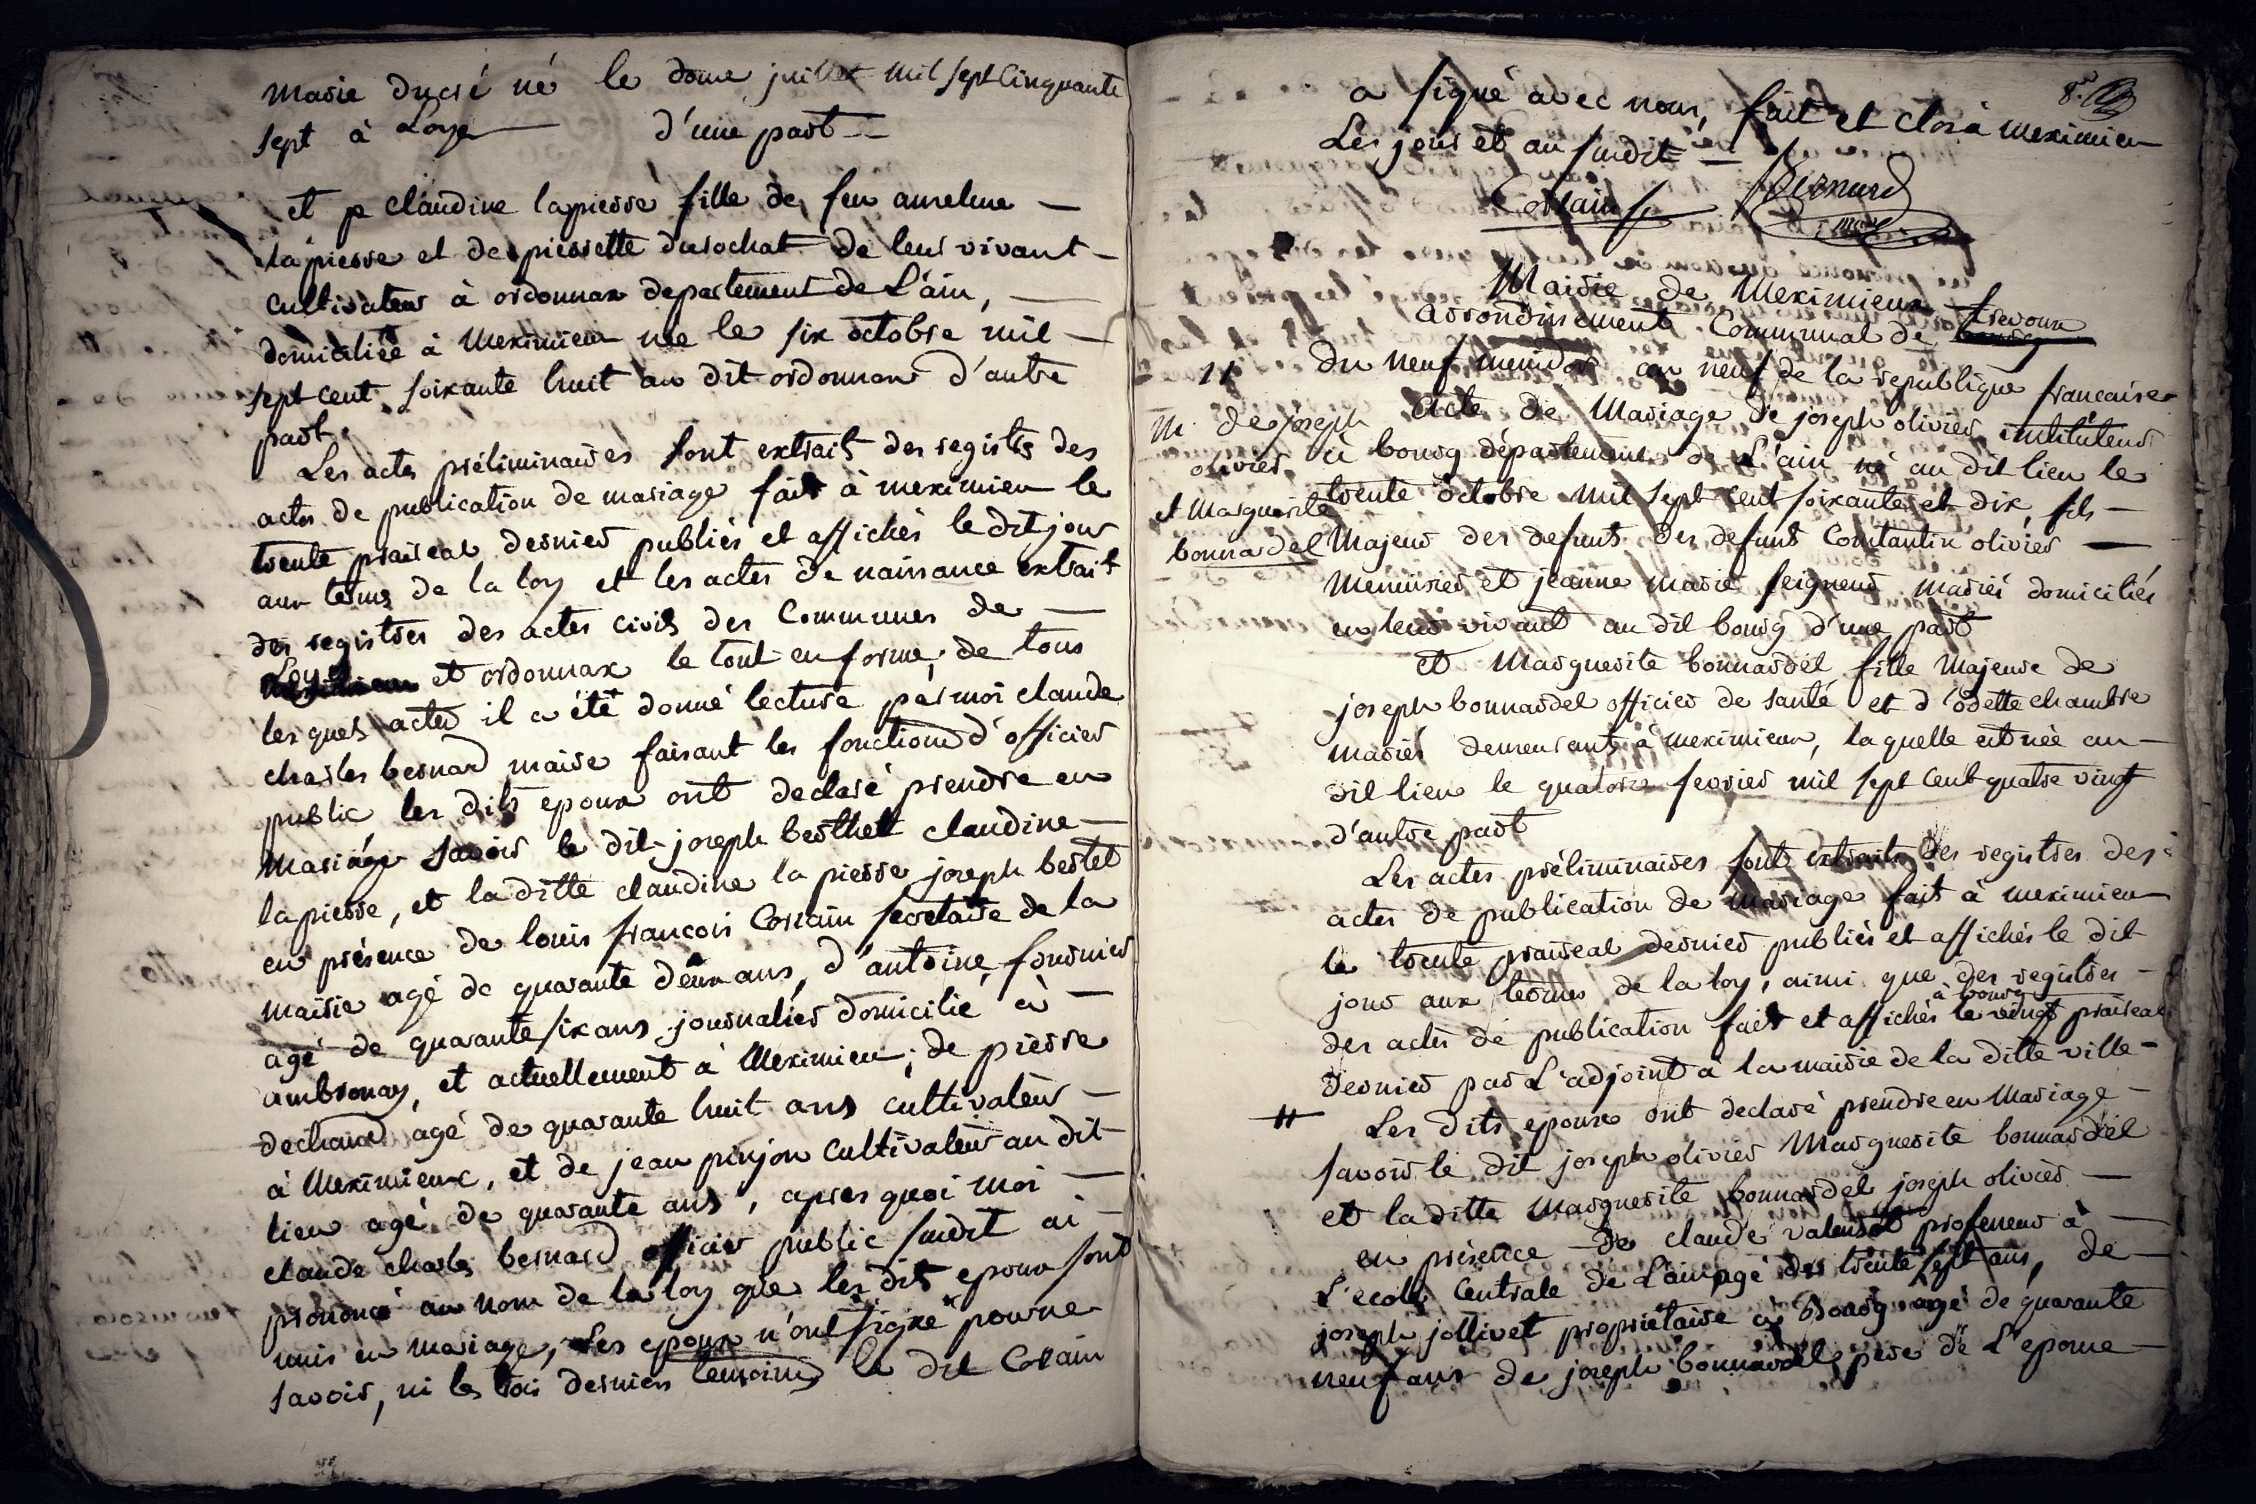 marie ducré né le douze juillet mil sept cinquante
sept à Loye — d'une part —
et p claudine lapierre fille de feu anselme —
lapierre et de pierrette durochat de leur vivant —
cultivateur à ordonnax departement de L'ain, —
domiciliée à Meximieu née le six octobre mil —
sept cent soixante huit au dit ordonnax d'autre
part.
Les actes préliminaires sont extrait des registres des
actes de publication de mariage fait à meximieu le
trente prairéal dernier publiés et affichés le dit jour
aux termes de la loy et les actes de naissance extrait
des registres des actes civils des Communes de —
Loye et ordonnax le tout en forme, de tous
les quels actes il a été donné lecture par moi claude
charles bernard maire faisant les fonctions d'officier
public les dits epoux ont declaré prendre en
Mariage savoir le dit joseph berthet claudine —
lapierre, et la ditte claudine la pierre joseph bertet
en présence de louis francois Corsain secretaire de la
mairie agé de quarante deux ans, d'antoine fournier
agé de quarante six ans journalier domicilié à —
ambronay, et actuellement à Meximieu, de pierre
dechaud agé de quarante huit ans cultivateur —
à Meximieux, et de jean pinjon cultivateur au dit
lieu agé de quarante ans, apres quoi moi —
claude charles bernard officier public susdit ai —
prononcé au nom de la loy que les dits epoux sont
unis en mariage, Les epoux n'ont signé pour ne
savoir, ni les trois derniers temoins le dit Corsain
8.e
a signé avec nous, fait et clos à meximieu
Les jour et an susdit —
Corsain Bernard
maire
Mairie de Meximieux
arrondissement Communal de trevoux
11 du neuf messidor an neuf de la republique francaise
M. de joseph
olivier
et Marguerite
bonnardel
acte de Mariage de joseph olivier instituteur
à bourg département de L'ain né au dit lieu le
trente octobre mil sept cent soixante et dix, fils —
Majeur des defunts des defunts Constantin olivier —
Menuisier et jeanne marie seigneur mariés domiciliés
en leur vivant au dit bourg d'une part
et Marguerite bonnardel fille Majeure de
joseph bonnardel officier de santé et d'odette chambre
mariés demeurant à meximieux, laquelle est née au —
dit lieu le quatorze fevrier mil sept cent quatre vingt
d'autre part
Les actes préliminaires sont extraits des registres des
actes de publication de mariage fait à meximieu
le trente prairéal dernier publiés et affichés le dit
jour aux termes de la loy, ainsi que des registres —
des actes de publication fait et affichés à bourg le vingt prairéal
dernier par L'adjoint à la mairie de la ditte ville —
# Les dits epoux ont declaré prendre en Mariage —
savoir le dit joseph olivier Marguerite bonnardel
et la ditte Marguerite bonnardel joseph olivier —
en présence de claude valensot professeur à —
L'ecole Centrale de L'ain agé de trente sept ans, de —
joseph jollivet propriétaire à Bourg agé de quarante
neuf ans de joseph bonnardel pere de L'epouse —